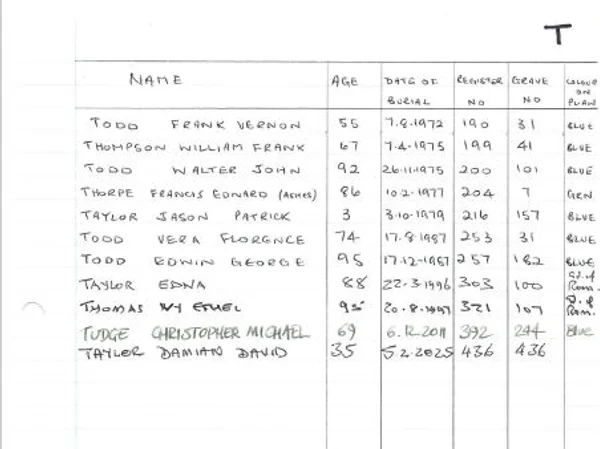 T
NAME AGE DATE OF BURIAL REGISTER NO GRAVE NO COLOUR ON PLAN
TODD FRANK VERNON 55 7.8.1972 190 31 BLUE
THOMPSON WILLIAM FRANK 67 7.4.1975 199 41 BLUE
TODD WALTER JOHN 92 26.11.1975 200 101 BLUE
THORPE FRANCIS EDWARD (ASHES) 86 10.2.1977 204 7 GRN
TAYLOR JASON PATRICK 3 3.10.1979 216 157 BLUE
TODD VERA FLORENCE 74 17.8.1987 253 31 BLUE
TODD EDWIN GEORGE 95 17.12.1987 257 182 BLUE
TAYLOR EDNA 88 22.3.1996 303 100 G. of Rem.
THOMAS IVY ETHEL 95 20.8.1997 321 107 G. of Rem.
TUDGE CHRISTOPHER MICHAEL 69 6.12.2011 392 244 Blue
TAYLOR DAMIAN DAVID 35 5.2.2025 436 436